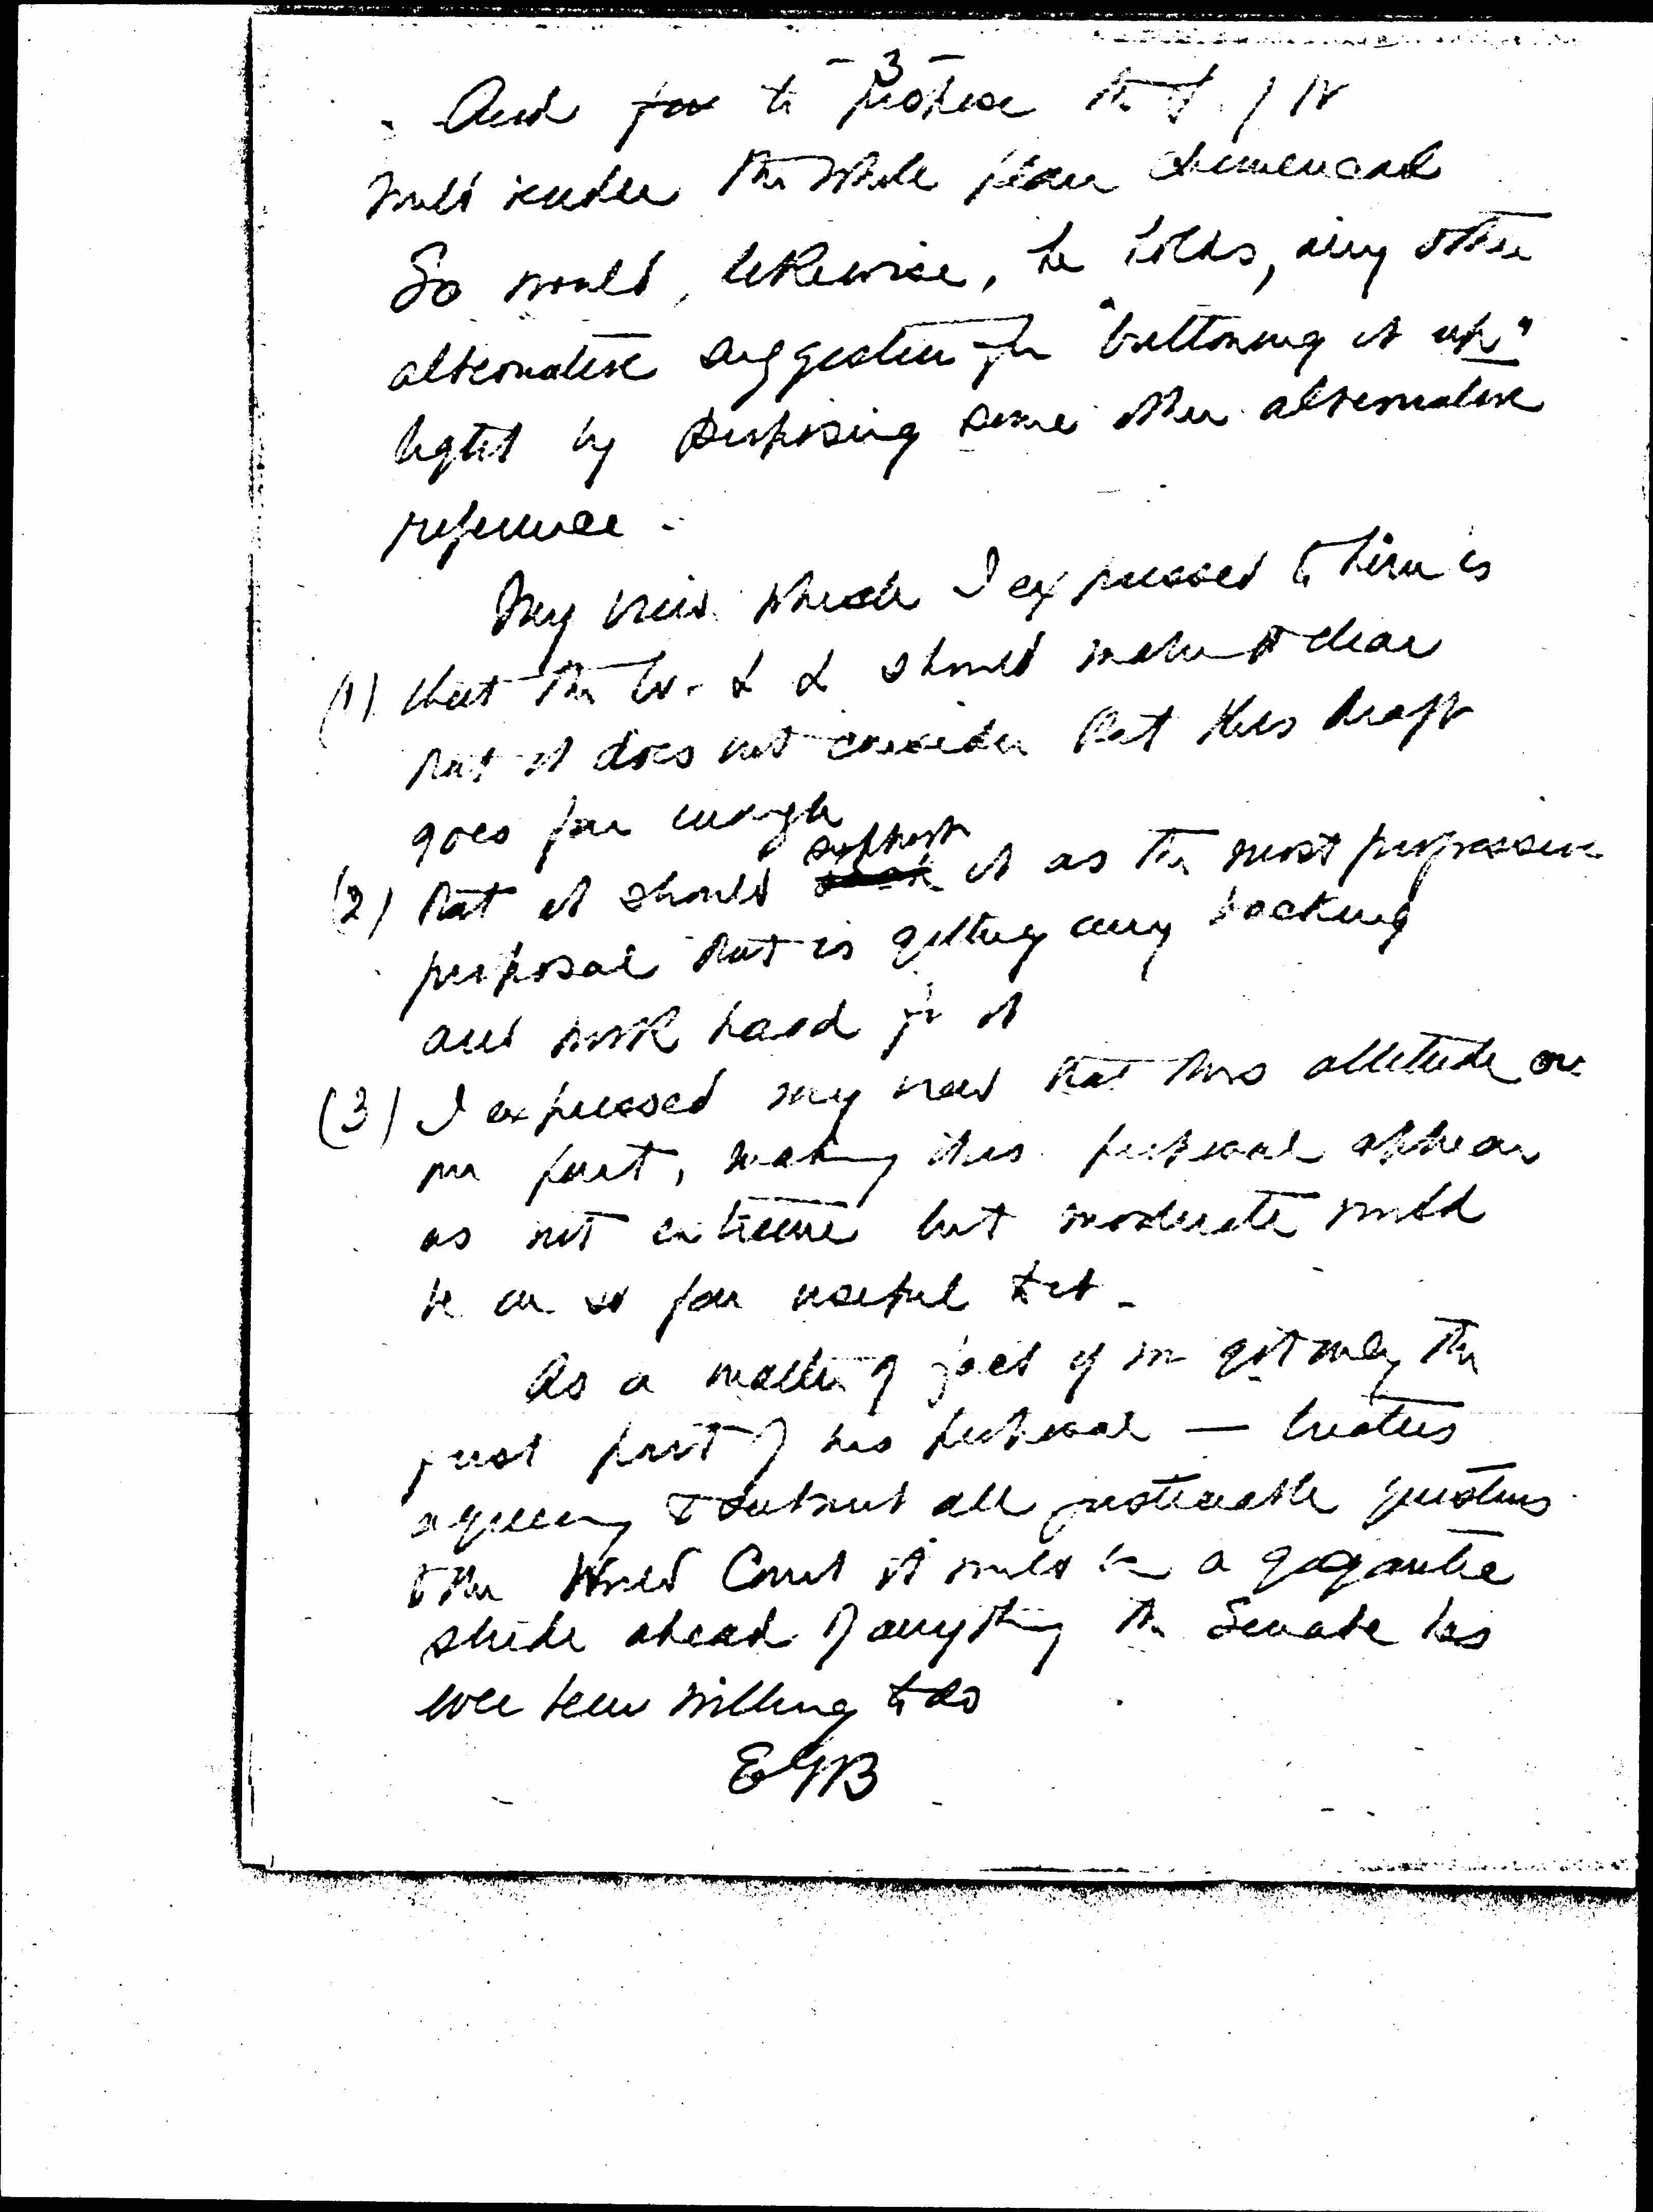 - 3 -
And for to propose the L. of N
would render the whole plan chimerical
So would, likewise, he holds, any other
alternative suggestion for "buttoning it up"
tight by proposing some other alternative
reference.
My view which I expressed to him is
(1) that the W. I L should make it clear
that it does not consider that this draft
goes far enough
(2) that it should support it as the most progressive
proposal that is getting any backing
and work hard for it
(3) I expressed my view that this attitude on
our part, making this proposal appear
as not extreme but moderate would
be in so far useful to it.
As a matter of fact if we got only the
first part of his proposal — treaties
agreeing to submit all justiciable questions
to the World Court it would be a gigantic
stride ahead of anything the Senate has
ever been willing to do
EGB